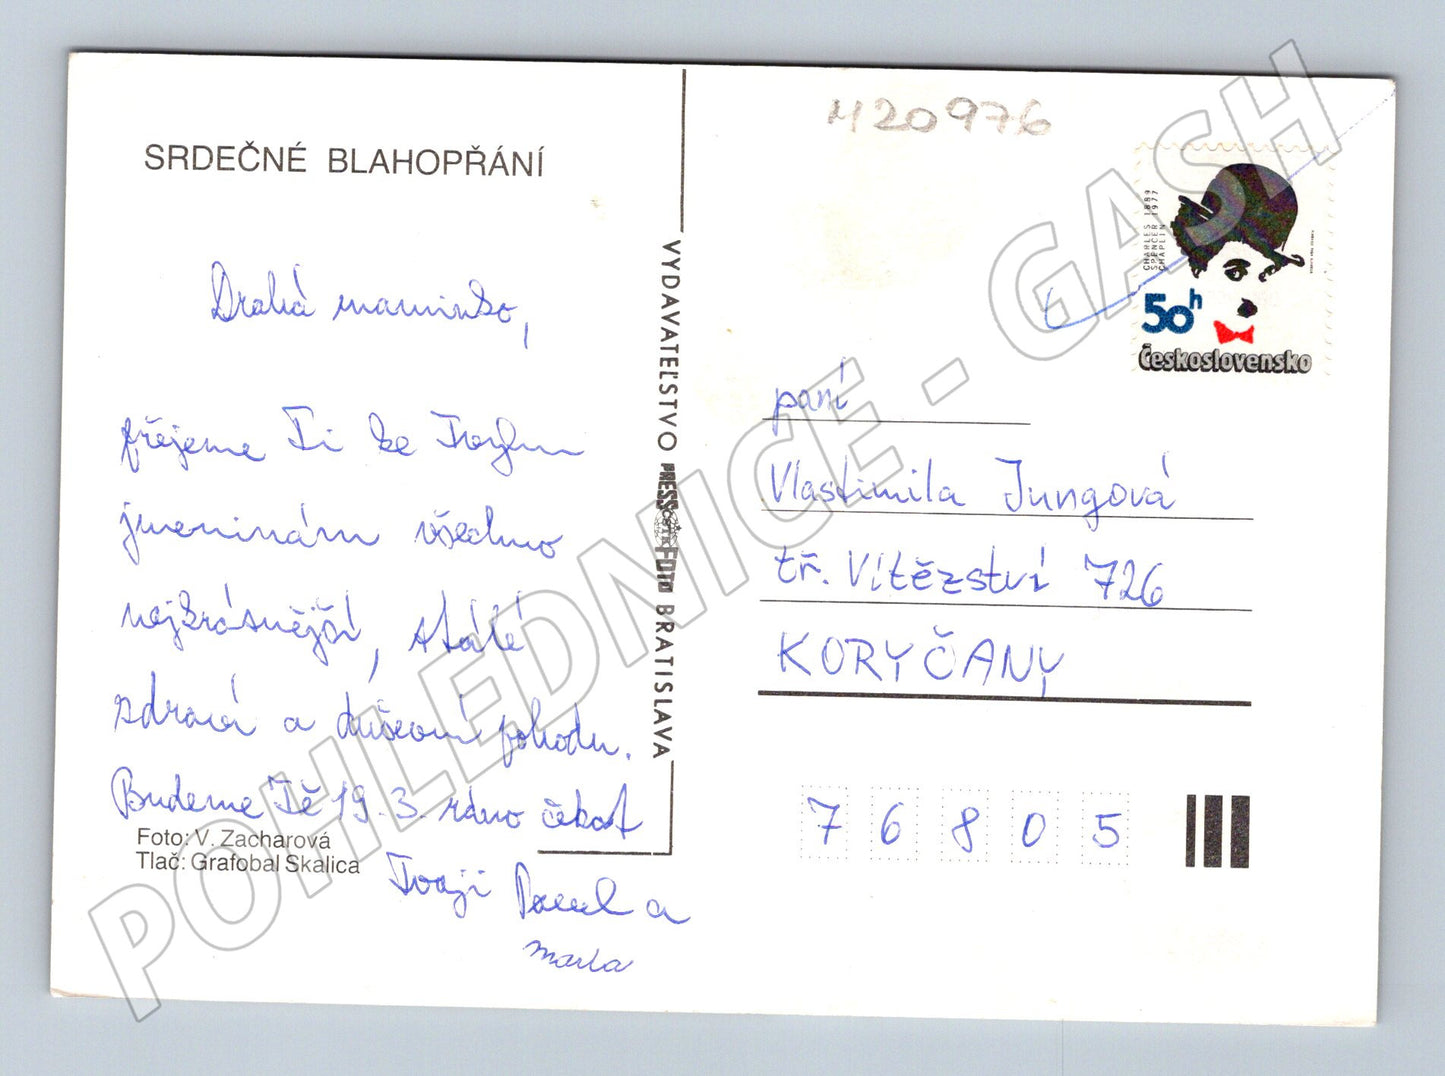 SRDEČNÉ BLAHOPŘÁNÍ
Drahá maminko,
přejeme Ti ke Tvým
jmeninám všechno
nejkrásnější, stálé
zdraví a duševní pohodu.
Budeme Tě 19. 3. ráno čekat
Foto: V. Zacharová
Tlač: Grafobal Skalica
Tvoji Pavel a
Marta
VYDAVATEĽSTVO PRESSFOTO BRATISLAVA
M20976
CHARLES 1889
SPENCER 1977
CHAPLIN
50h
Československo
paní
Vlastimila Jungová
tř. Vítězství 726
KORYČANY
76805
POHLEDNICE - GASH